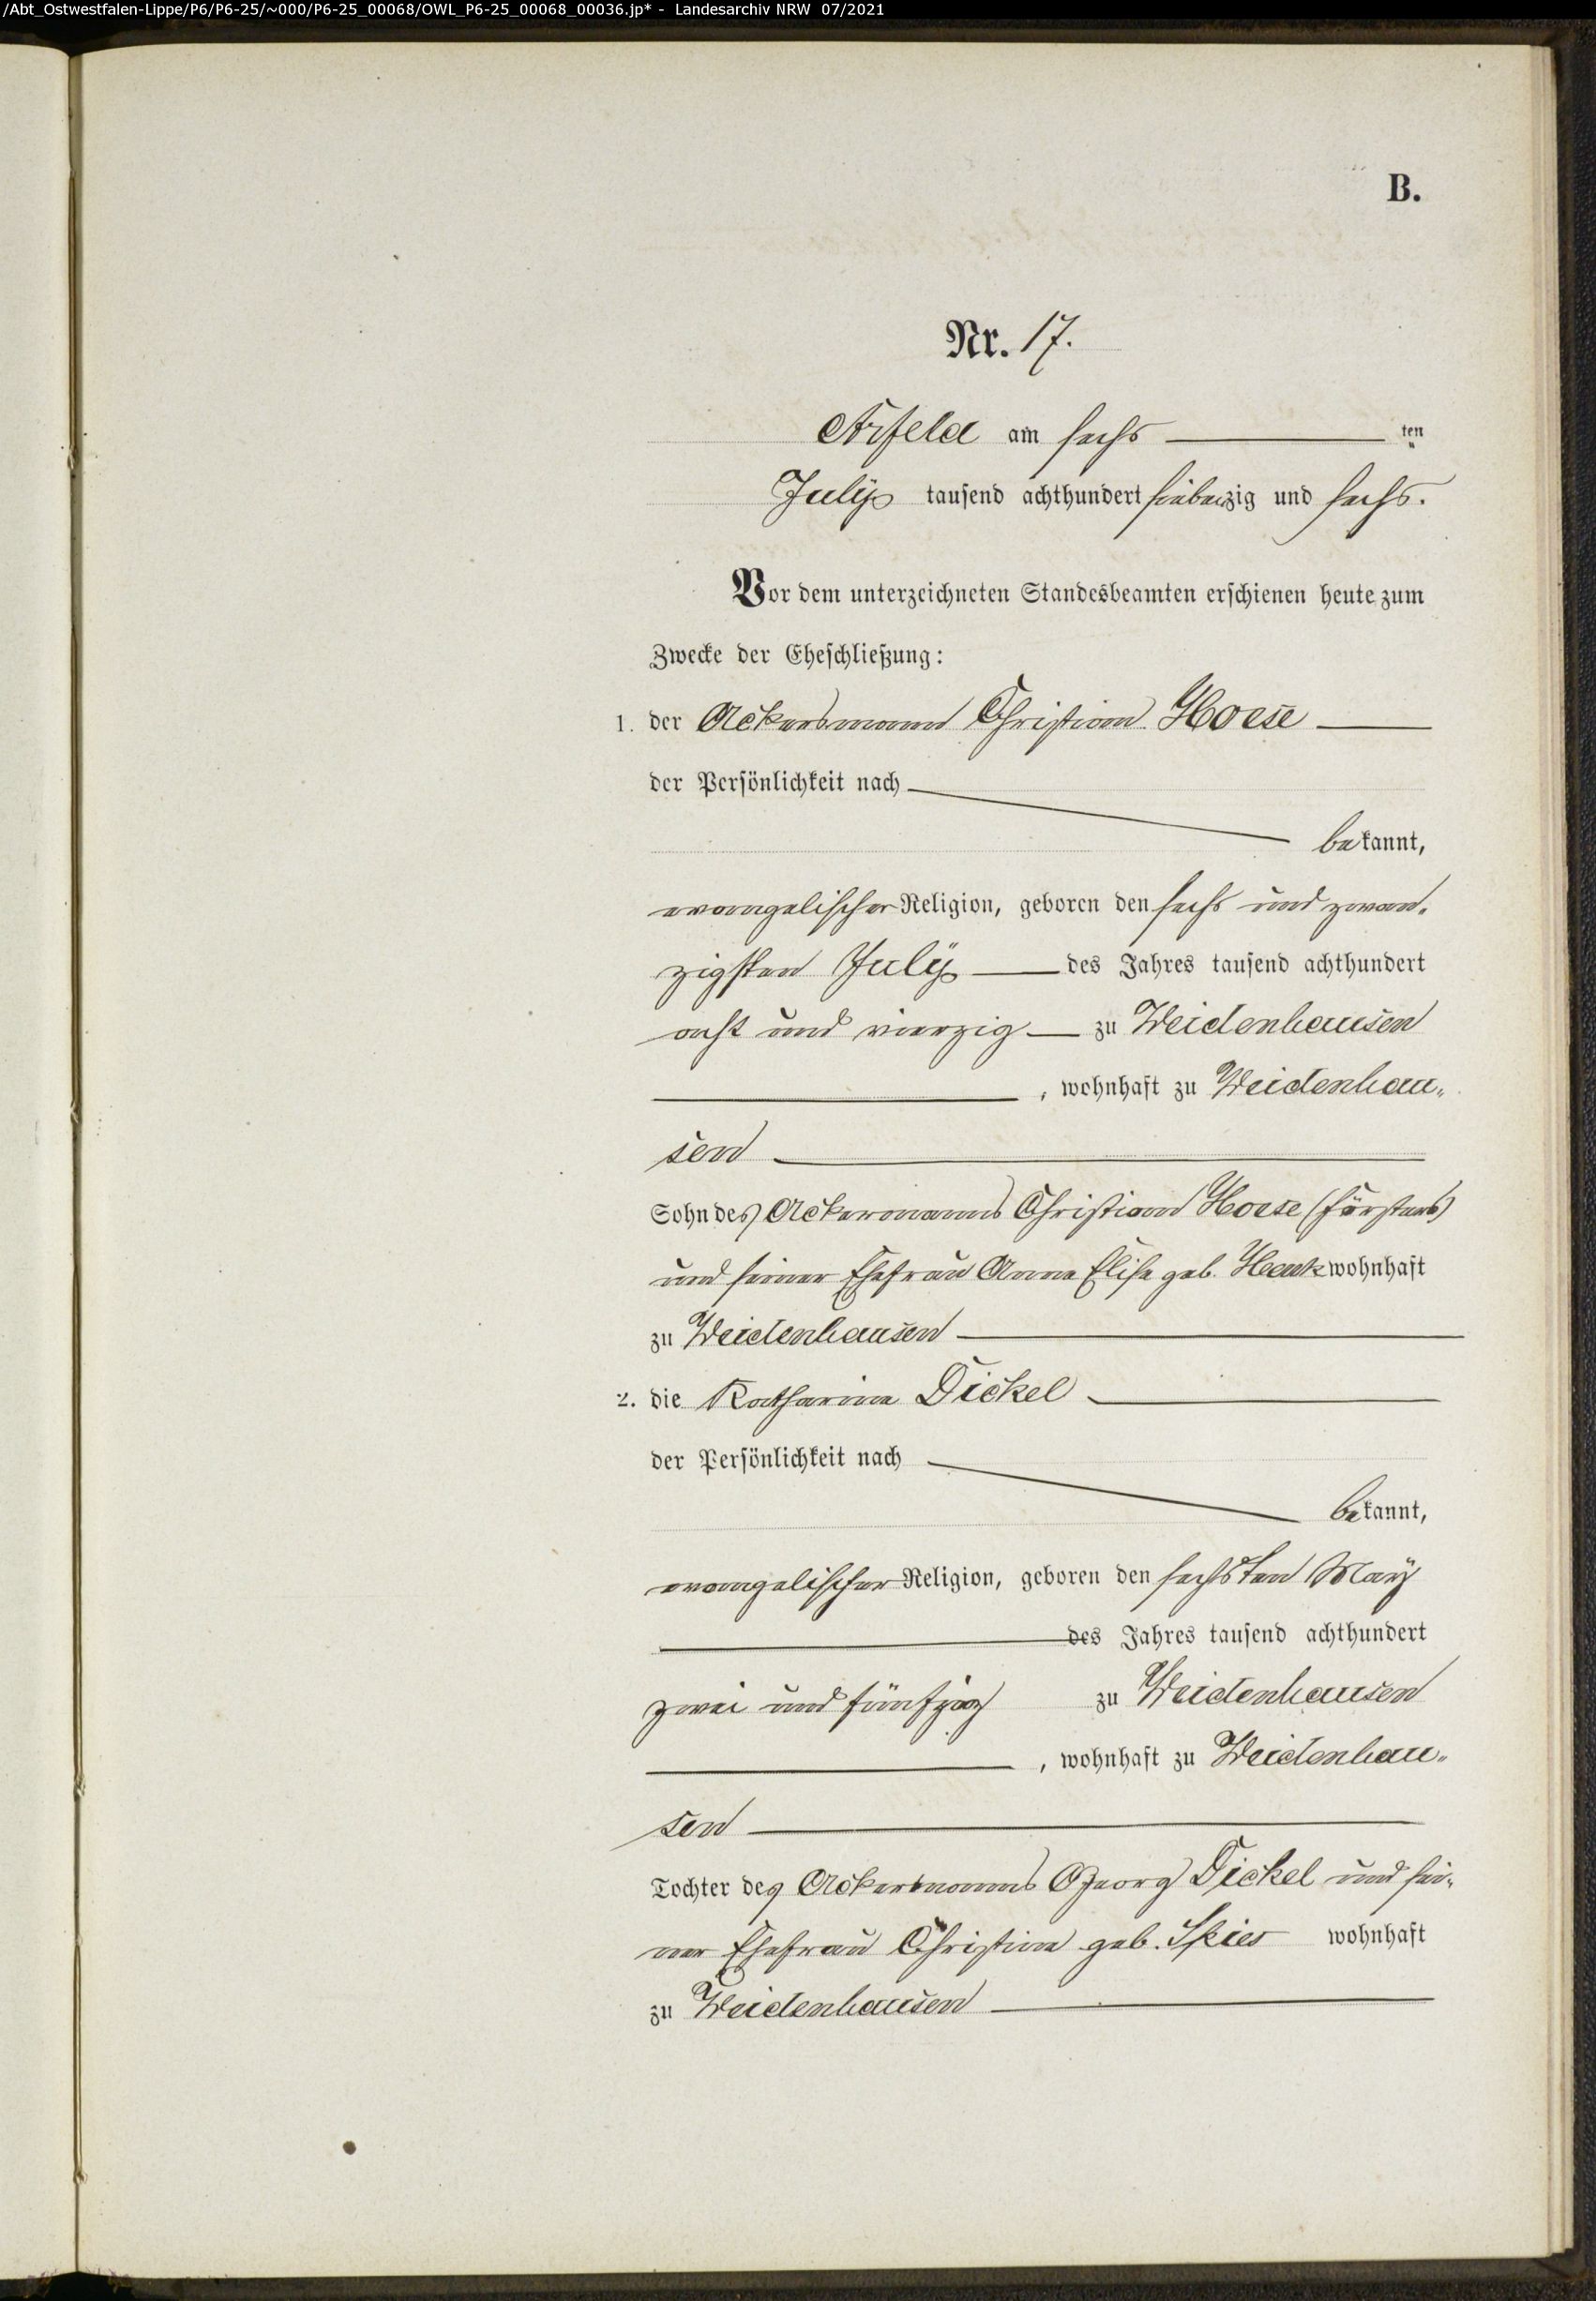 /Abt_Ostwestfalen-Lippe/P6/P6-25/~000/P6-25_00068/OWL_P6-25_00068_00036.jp* - Landesarchiv NRW 07/2021
B.
Nr. 17.
Arfeld am sechs ten
July tausend achthundert siebenzig und sechs.
Vor dem unterzeichneten Standesbeamten erschienen heute zum
Zwecke der Eheschließung:
1. der Ackersmann Christian Hoese
der Persönlichkeit nach
bekannt,
evangelischer Religion, geboren den sechs und zwan-
zigsten July des Jahres tausend achthundert
acht und vierzig zu Weidenhausen
, wohnhaft zu Weidenhau-
sen
Sohn des Ackermanns Christian Hoese (Försters)
und seiner Ehefrau Anna Elise geb. wohnhaft
zu Weidenhausen
2. die Katharina Dickel
der Persönlichkeit nach
bekannt,
evangelischer Religion, geboren den sechsten May
des Jahres tausend achthundert
zwei und fünfzig zu Weidenhausen
, wohnhaft zu Weidenhau-
sen
Tochter des Ackersmanns Georg Dickel und sei-
ner Ehefrau Christine geb. Spies wohnhaft
zu Weidenhausen